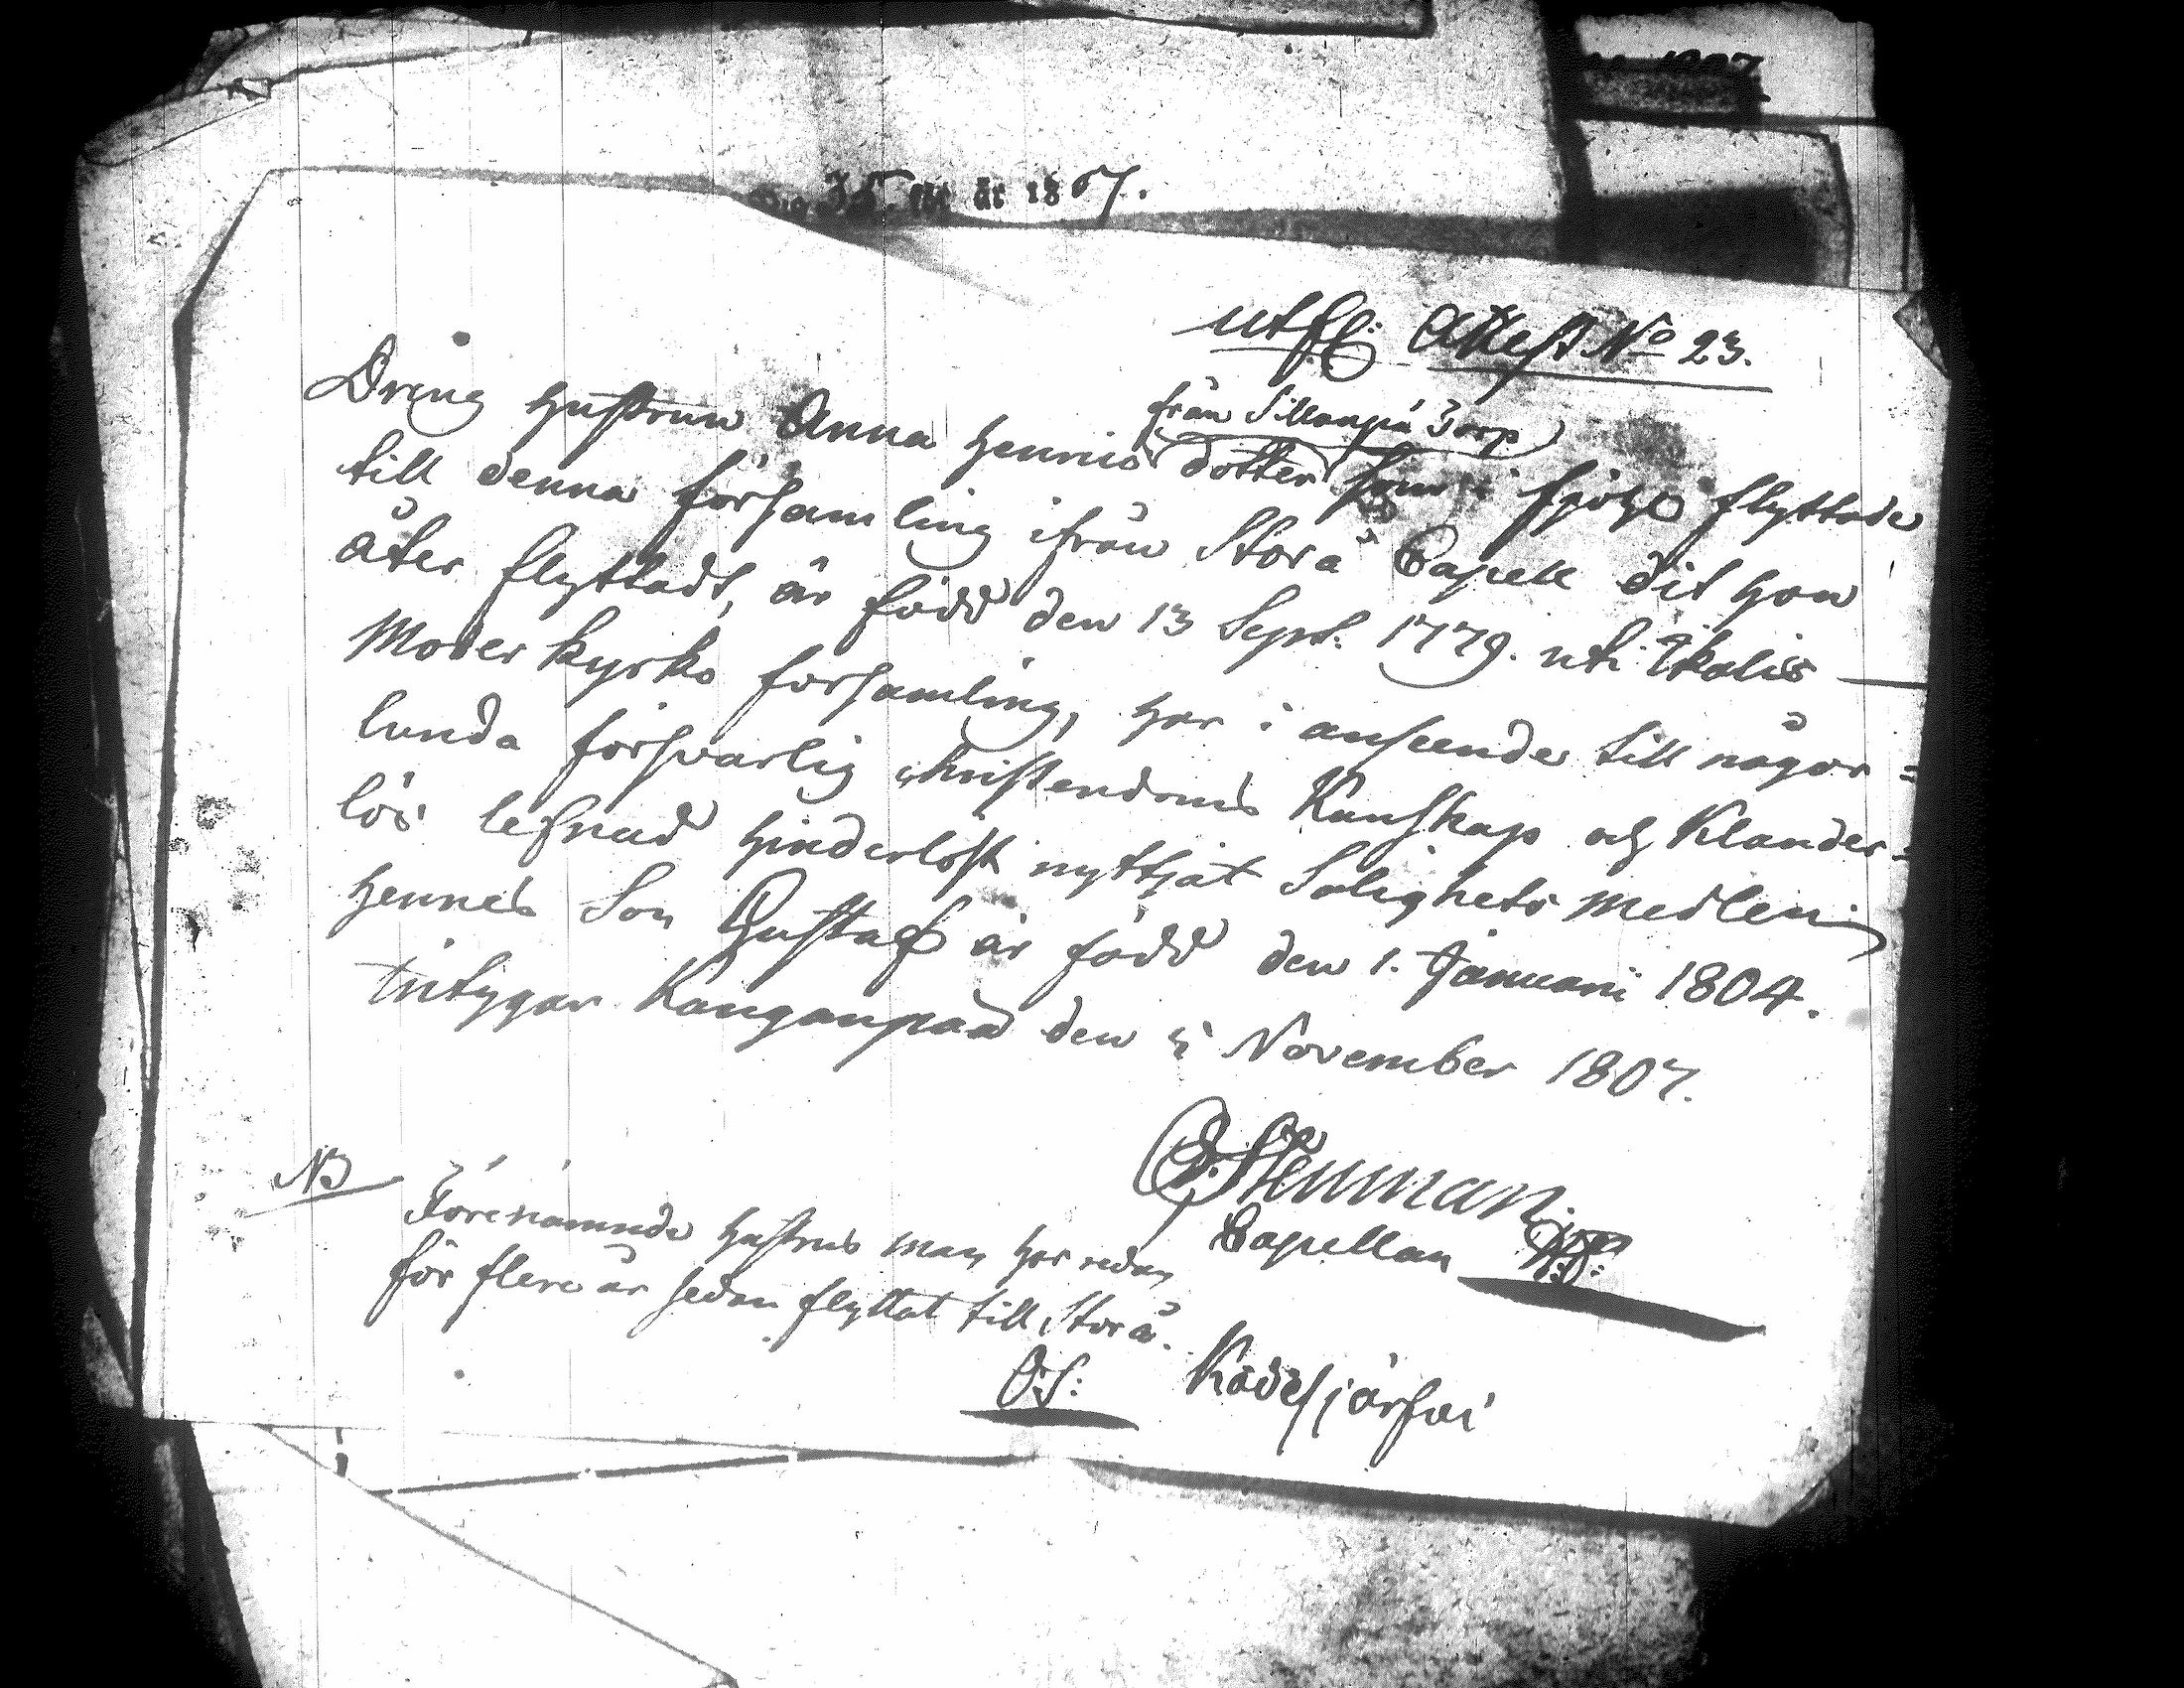 1807
35. för år 1867.
utfl: Attest No 23.
från Sillanpä Torp
Dreng hustrun Anna Henricsdotter som i fjohl flyttade
till denna församling ifrån Storå Capell dit hon
åter flyttadt, är född den 13 Sept. 1779. uti Ikalis
Moder kyrko forsamling, har i anseende till någor=
lunda försvarlig christendoms Kunskap och Klander=
lös lefnad hinderlöst nyttjat Salighets medlen;
hennes Son Gustaf är född den 1. Januarii 1804.
intygar Kanganpää den 5 November 1807.
Stenman.
Capellan
NB Förenämnde hustrus man har redan
för flere år sedan flyttat till Storå.
O.S:
Kådesjärfvi